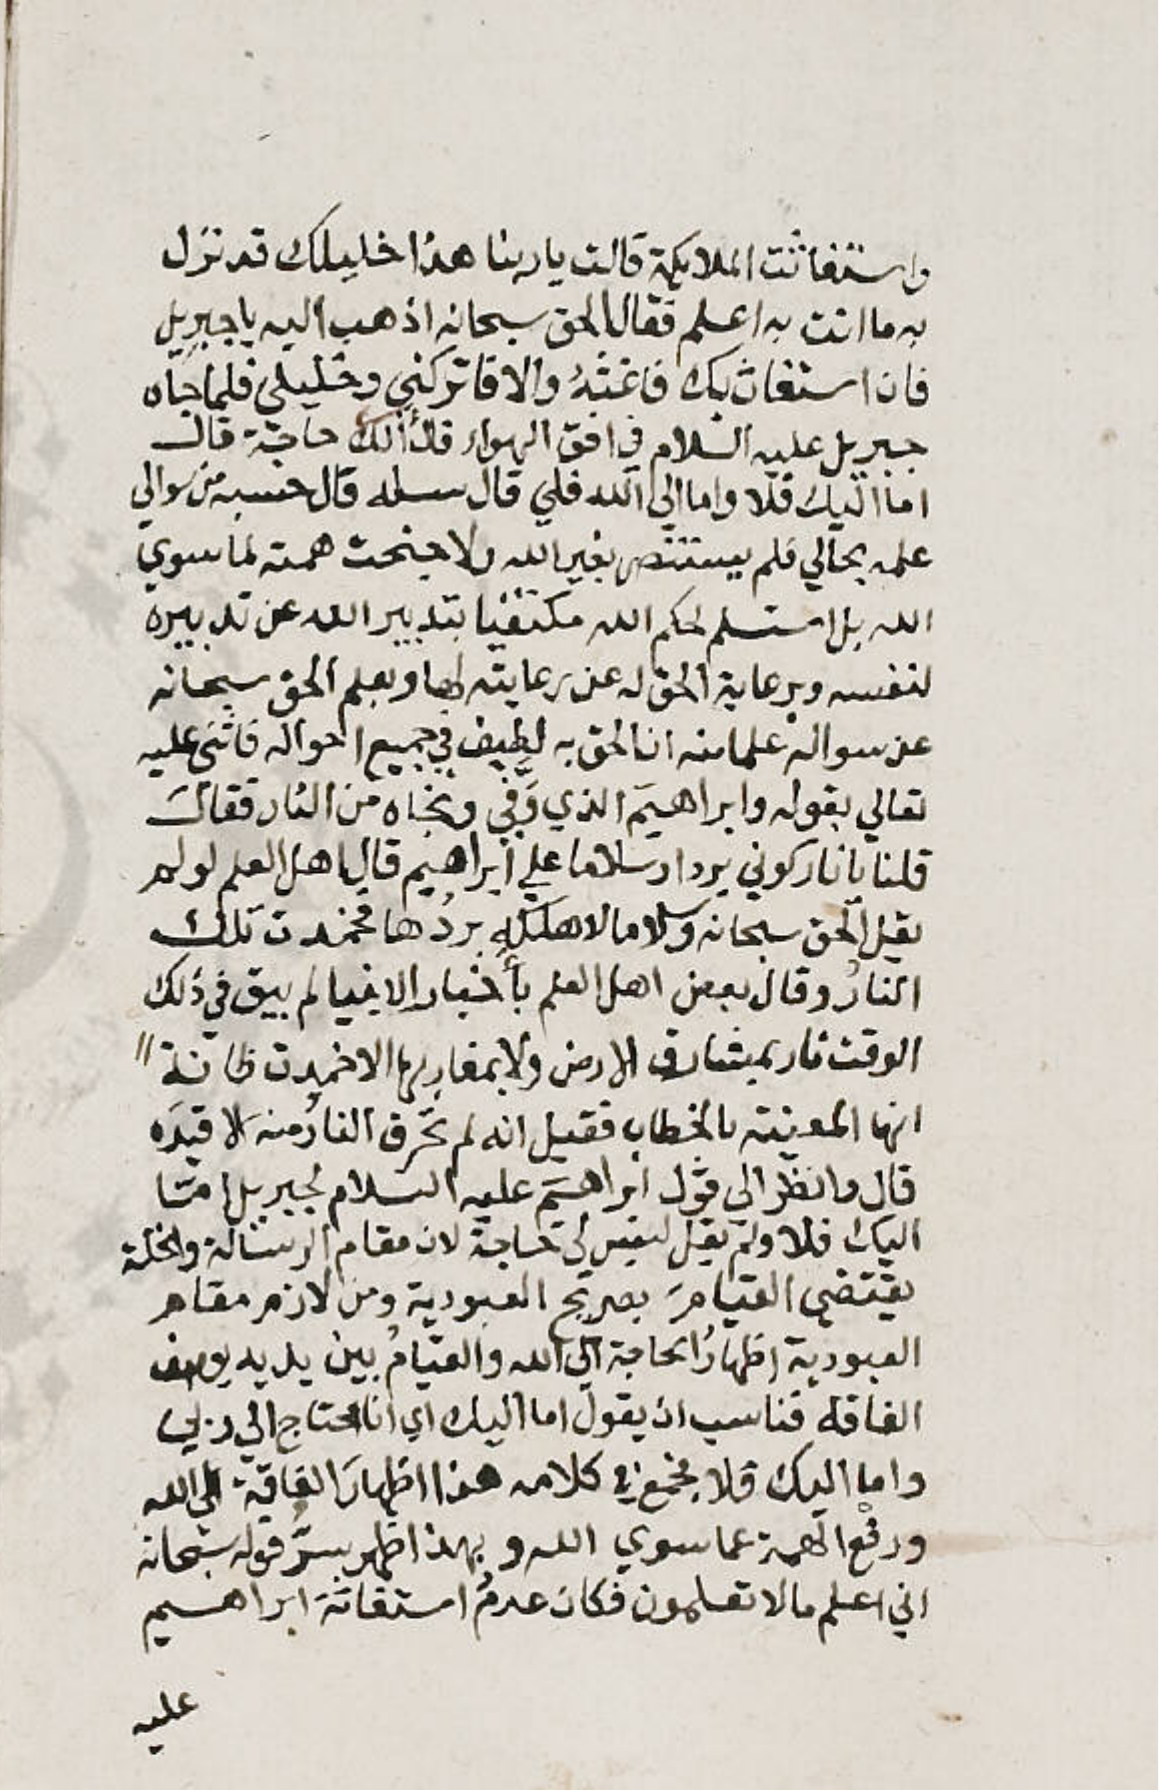 واستغاثت الملايكة قالت يا ربنا هذا خليلك قد نزل
به ما انت به اعلم فقال الحق سبحانه اذهب اليه يا جبريل
فان استغاث بك فاغثه والا فاتركني وخليلي فلما جاه
جبريل عليه السلام في افق الهواء قال الك حاجة قال
اما اليك فلا واما الي الله فلي قال سله قال حسبه من سوالي
علمه بحالي فلم يستنصر بغير الله ولا جنحت همته لما سوي
الله بل استسلم لحكم الله مكتفيا بتدبير الله عن تدبيره
لنفسه وبرعاية الحق له عن رعايته لها وبعلم الحق سبحانه
عن سواله علما منه ان الحق به لطيف في جميع احواله فاثني عليه
تعالي بقوله وابراهيم الذي وَفّي ونجاه من النار فقال
قلنا يا نار كوني بردا وسلاما علي ابراهيم قال اهل العلم لو لم
يقل الحق سبحانه وسلاما لاهلكه بردُها فخمدت تلك
النارُ وقال بعض اهل العلم بأخبار الانبيا لم يبق في ذلك
الوقت نار بمشارق الارض ولا بمغاربها الا خمدت ظانة
انها المعنية بالخطاب فقيل انه لم تحرق النارُ منه الا قيدَه
قال وانظر الي قول ابراهيمَ عليه السلام لجبريل امّا
اليك فلا ولم يقل ليس لي حاجة لان مقام الرسالة والخلة
يقتضي القيامَ بصريح العبودية ومن لازم مقام
العبودية اظهارُ الحاجة الي الله والقيامُ بين يديه بوصف
الفاقة فناسب ان يقول اما اليك اي انا محتاج الي ربي
واما اليك فلا فجمع في كلامه هذا اظهارَ الفاقة الي الله
ورفع الهمة عما سوي الله وبهذا ظهر سرُّ قوله سبحانه
اني اعلم ما لا تعلمون فكان عدمُ استغاثة ابراهيم
عليه